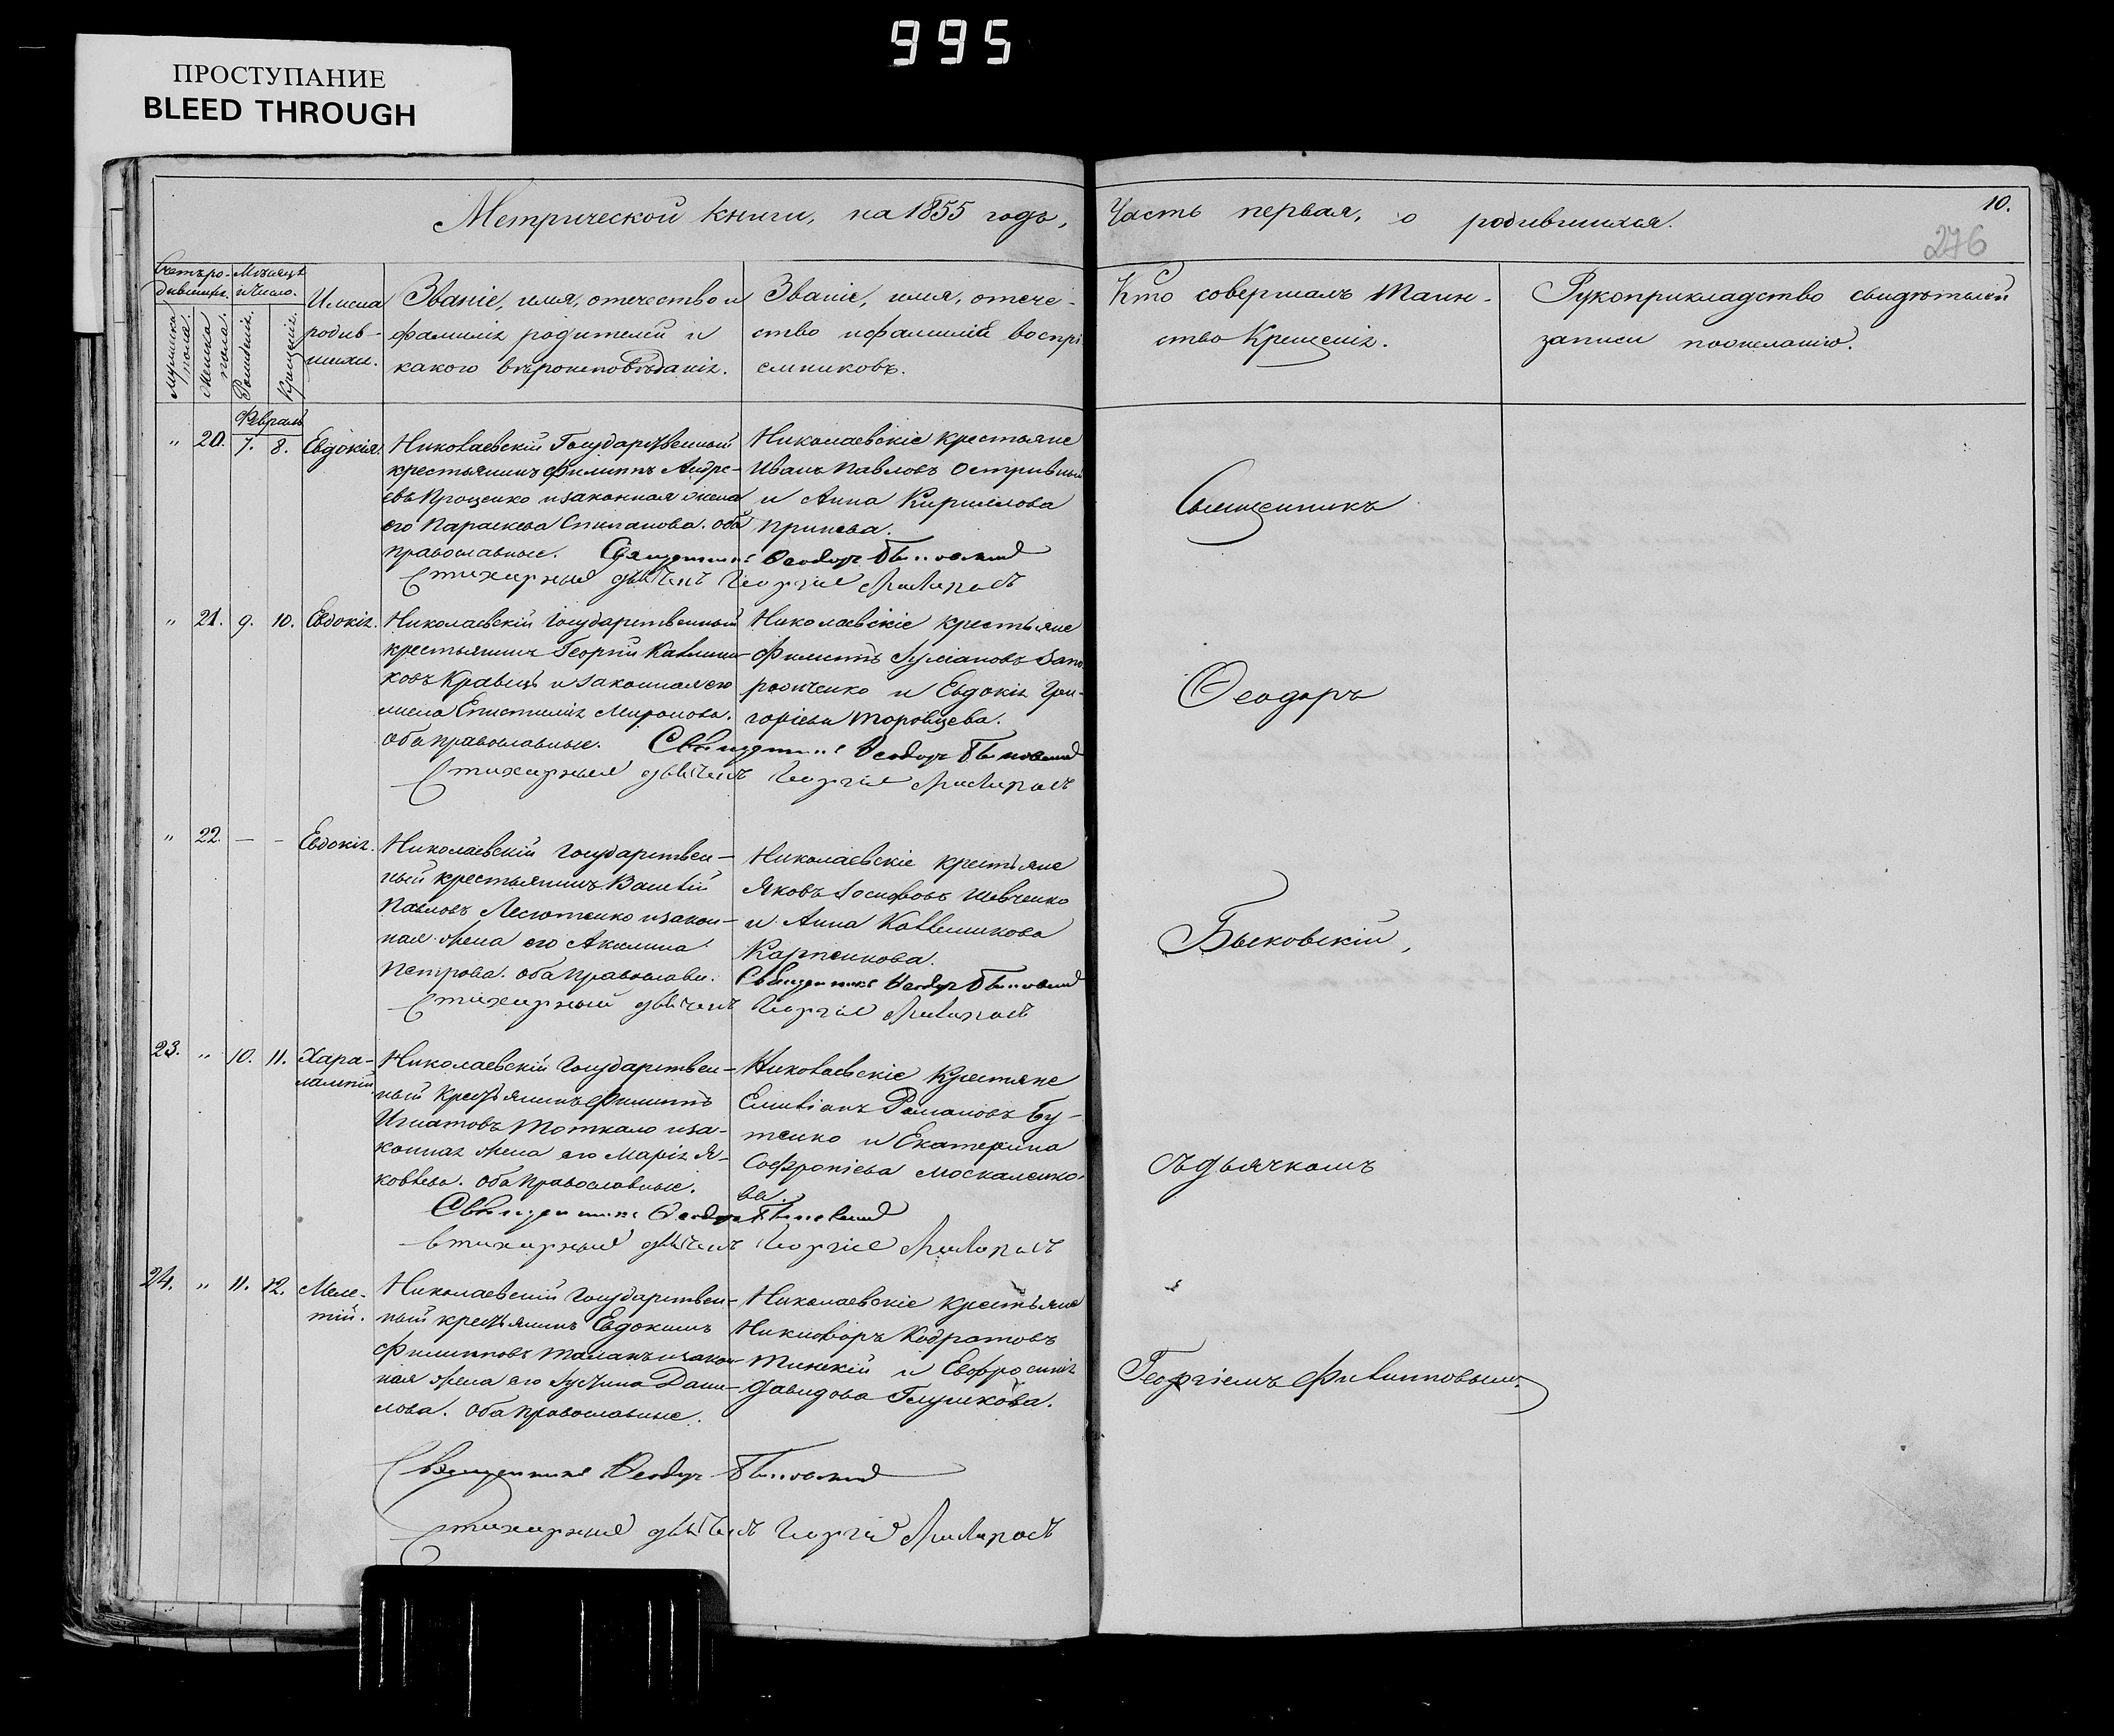 995
ПРОСТУПАНИЕ
BLEED THROUGH
Метрической книги, на 1855 годъ,
Часть первая, о родившихся.
10.
276
Счетъ ро-
дившихъ.
Мѣсяцъ
и число.
Мужеска
пола.
Женска
пола.
Рожденія.
Крещенія.
Имена
родив-
шихся.
Званіе, имя, отечество и
фамилія родителей и
какого вѣроисповѣданія.
Званіе, имя, отече-
ство и фамилія воспрі
емниковъ.
Кто совершалъ Таин-
ство Крещенія.
Рукоприкладство свидѣтелей
записи по желанію.
Февраль
" 20. 7. 8. Евдокія.
Николаевскій Государственный
крестьянинъ Филиппъ Андре-
евъ Проценко и законная жена
его Параскева Степанова. оба
православные.
Николаевскіе крестьяне
Иванъ Павловъ Остривный
и Анна Кириллова
Принева.
Священникъ Ѳеодоръ Быковскій
Стихарный дьячекъ Георгій
" 21. 9. 10. Евдокія.
Николаевскій Государственный
крестьянинъ Георгій Каллини-
ковъ Кравецъ и законная его
жена Епистимія Миронова.
оба православные.
Николаевскіе крестьяне
Филиппъ Іуліановъ Запо
рожченко и Евдокія Гри-
горіева Торовцева.
Священникъ Ѳеодоръ Быковскій
Стихарный дьячекъ Георгій
" 22. — - Евдокія.
Николаевскій государствен-
ный крестьянинъ Василій
Павловъ Лесютенко и закон-
ная жена его Акилина
Петрова. оба православн.
Николаевскіе крестьяне
Яковъ Іосифовъ Шевченко
и Анна Каллиникова
Карпенкова.
Священникъ Ѳеодоръ Быковскій
Стихарный дьячекъ Георгій
23. " 10. 11. Хара-
лампій
Николаевскій Государствен-
ный крестьянинъ Филиппъ
Игнатовъ Тоткало и за-
конная жена его Марія Я-
ковлева. оба православные.
Николаевскіе Крестяне
Емиліанъ Романовъ Бу-
тенко и Екатерина
Софроніева Москаленко-
ва.
Священникъ Ѳеодоръ Быковскій
Стихарный дьячекъ Георгій
24. " 11. 12. Меле-
тій.
Николаевскій Государствен-
ный крестьянинъ Евдокимъ
Филипповъ Таланъ и закон
ная жена его Іустина Дани-
лова. Оба православные.
Николаевскіе крестьяне
Никифоръ Кодратовъ
Тинскій и Евфросинія
Давидова Глушкова.
Священникъ Ѳеодоръ Быковскій
Стихарный дьячекъ Георгій
Священникъ
Ѳеодоръ
Быковскій,
съ дьячкомъ
Георгіемъ Филипповымъ.